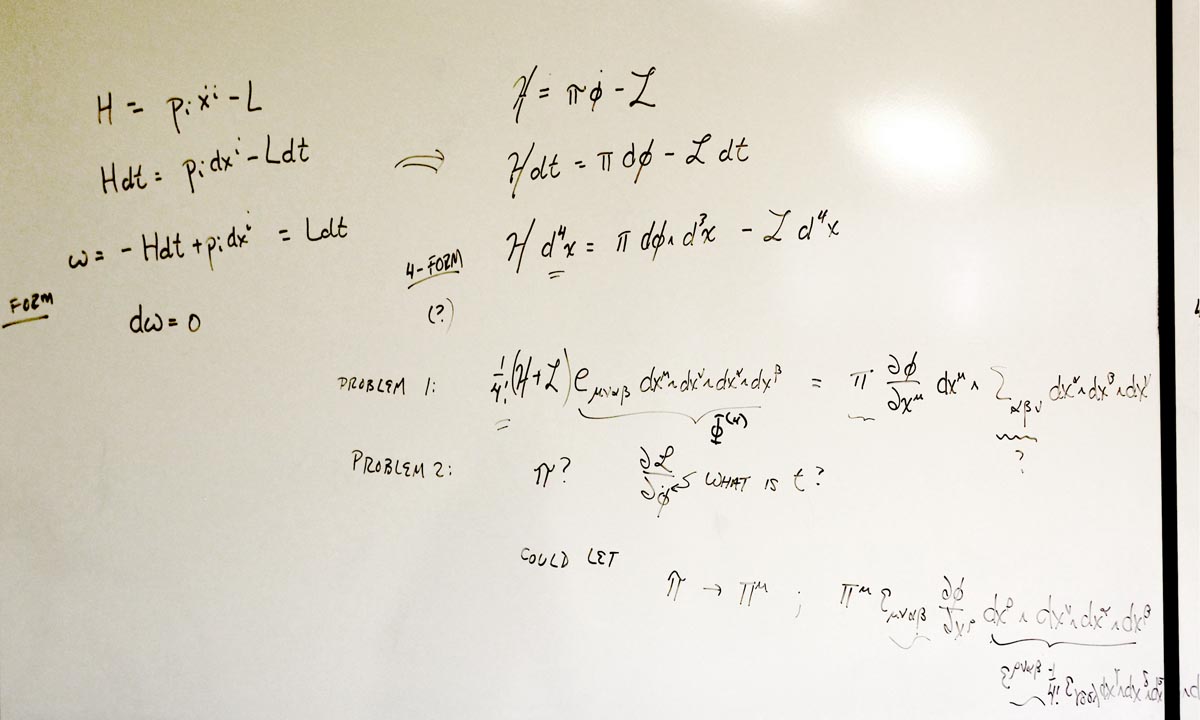 H = pᵢẋⁱ - L
Hdt = pᵢdxⁱ - Ldt
ω = - Hdt + pᵢdxⁱ = Ldt
FORM
dω = 0
⇒
ℋ = πφ̇ - ℒ
ℋdt = π dφ - ℒ dt
4-FORM ℋ d⁴x = π dφ∧d³x - ℒ d⁴x
(?)
PROBLEM 1: 1/4! (ℋ+ℒ) e_μναβ dx^μ∧dx^ν∧dx^α∧dx^β = π ∂φ/∂x^μ dx^μ ∧ Σ_αβν dx^α∧dx^β∧dx^ν
?
PROBLEM 2: π? ∂ℒ/∂φ̇ WHAT IS t?
COULD LET
π → π^μ ; π^μ ε_μναβ ∂φ/∂x^ρ dx^ρ∧dx^ν∧dx^α∧dx^β